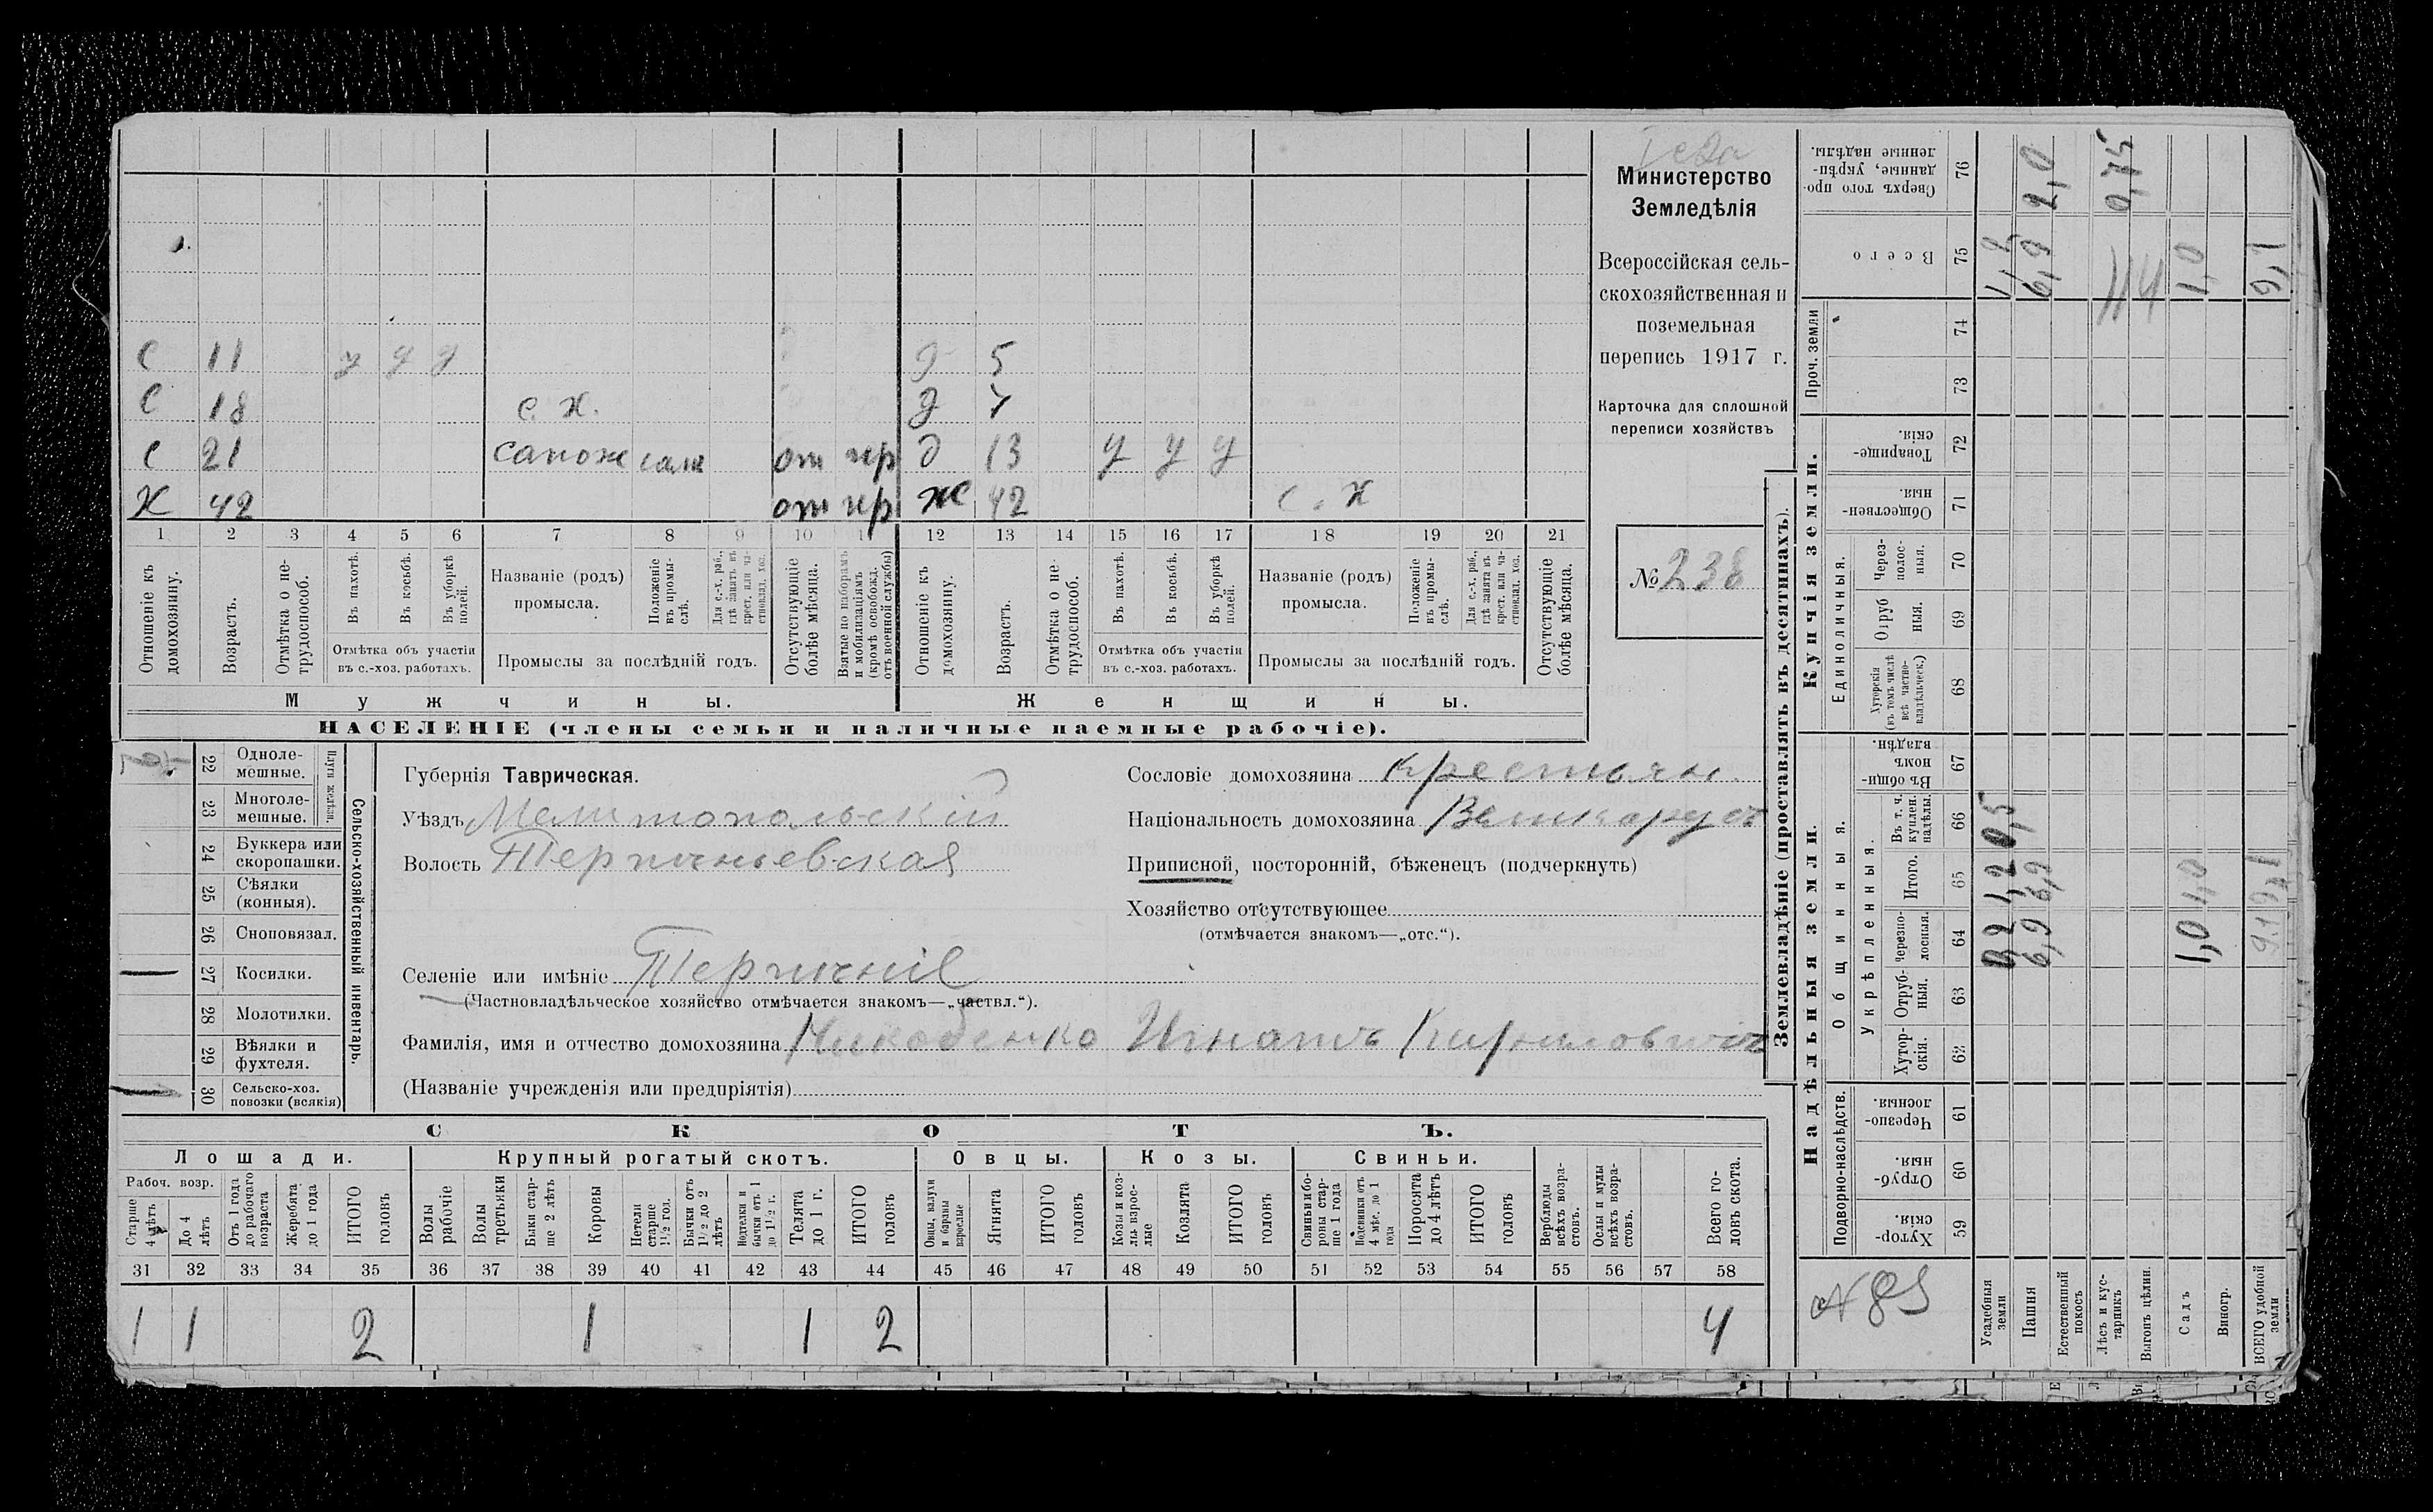 С 11 у у у д 5
С 18 с. х. д 7
С 21 сапож сам от пр д 13 у у у
Х 42 от пр ж 42 с. х
1 2 3 4 5 6 7 8 9 10 11 12 13 14 15 16 17 18 19 20 21
Отношеніе къ домохозяину.
Возрастъ.
Отмѣтка о не-трудоспособ.
Въ пахотѣ.
Въ косьбѣ.
Въ уборкѣ полей.
Отмѣтка объ участіи въ с.-хоз. работахъ.
Названіе (родъ) промысла.
Положеніе въ промы-слѣ.
Для с.-х. раб., гдѣ занятъ въ крест. или ча-стновлад. хоз.
Промыслы за послѣдній годъ.
Отсутствующіе болѣе мѣсяца.
Взятые по наборамъ и мобилизаціямъ (кромѣ освобожд. отъ военной службы)
Отношеніе къ домохозяину.
Возрастъ.
Отмѣтка о не-трудоспособ.
Въ пахотѣ.
Въ косьбѣ.
Въ уборкѣ полей.
Отмѣтка объ участіи въ с.-хоз. работахъ.
Названіе (родъ) промысла.
Положеніе въ промы-слѣ.
Для с.-х. раб., гдѣ занята въ крест. или ча-стновлад. хоз.
Промыслы за послѣдній годъ.
Отсутствующіе болѣе мѣсяца.
Мужчины. Женщины.
НАСЕЛЕНІЕ (члены семьи и наличные наемные рабочіе).
Министерство
Земледѣлія
Всероссійская сель-
скохозяйственная и
поземельная
перепись 1917 г.
Карточка для сплошной
переписи хозяйствъ
№ 238
22 Одноле-мешные.
23 Многоле-мешные.
Плуги желѣзн.
24 Буккера или скоропашки.
25 Сѣялки (конныя).
26 Сноповязал.
27 Косилки.
28 Молотилки.
29 Вѣялки и фухтеля.
30 Сельско-хоз. повозки (всякія)
Сельско-хозяйственный инвентарь.
Губернія Таврическая.
Уѣздъ Мелитопольскій
Волость Терпиньевская
Селеніе или имѣніе Терпиніе
(Частновладѣльческое хозяйство отмѣчается знакомъ—„частвл.“).
Фамилія, имя и отчество домохозяина Игнатъ Кириловичъ
(Названіе учрежденія или предпріятія)
Сословіе домохозяина крестьян.
Національность домохозяина Великорус
Приписной, посторонній, бѣженецъ (подчеркнуть)
Хозяйство отсутствующее
(отмѣчается знакомъ—„отс.“).
СКОТЪ.
Лошади. Крупный рогатый скотъ. Овцы. Козы. Свиньи.
Рабоч. возр.
Старше 4 лѣтъ
До 4 лѣтъ
Отъ 1 года до рабочаго возраста
Жеребята до 1 года
ИТОГО головъ
Волы рабочіе
Волы третьяки
Быки стар-ше 2 лѣтъ
Коровы
Нетели старше 1½ год.
Бычки отъ 1½ до 2 лѣтъ
Подтелки и бычки отъ 1 до 1½ г.
Телята до 1 г.
ИТОГО головъ
Овцы, валухи и бараны взрослые
Ягнята
ИТОГО головъ
Козы и коз-лы взрос-лые
Козлята
ИТОГО головъ
Свиньи и бо-ровы стар-ше 1 года
Подсвинки отъ 4 мѣс. до 1 года
Поросята до 4 лѣтъ
ИТОГО головъ
Верблюды всѣхъ возра-стовъ.
Ослы и мулы всѣхъ возра-стовъ.
Всего го-ловъ скота.
31 32 33 34 35 36 37 38 39 40 41 42 43 44 45 46 47 48 49 50 51 52 53 54 55 56 57 58
1 1 2 1 1 2 4
Землевладѣніе (проставлять въ десятинахъ).
Надѣльныя земли. Купчія земли.
Проч. земли
Сверхъ того про-данные, укрѣп-ленные надѣлы. 76
Всего 75
74
73
Товарище-скія. 72
Обществен-ныя. 71
Единоличныя.
Через-полос-ныя. 70
Отруб ныя. 69
Хуторскія (въ томъ числѣ всѣ частно-владѣльческ.) 68
Общинныя.
Въ общин-номъ владѣн. 67
Укрѣпленныя.
Въ т. ч. куплен. надѣлы. 66
Итого. 65
Черезпо-лосныя. 64
Отруб-ныя. 63
Хутор-скія. 62
Подворно-наслѣдств.
Черезпо-лосныя. 61
Отруб-ныя. 60
Хутор-скія. 59
Усадебныя земли 0,5
Пашня 6,9 6,9 6,9 2,0
Естественный покосъ
Лѣсъ и кус-тарникъ 0,75
Выгонъ цѣлин.
Садъ 1,0 1,0 1,0
Виногр.
ВСЕГО удобной земли 9,1 9,1